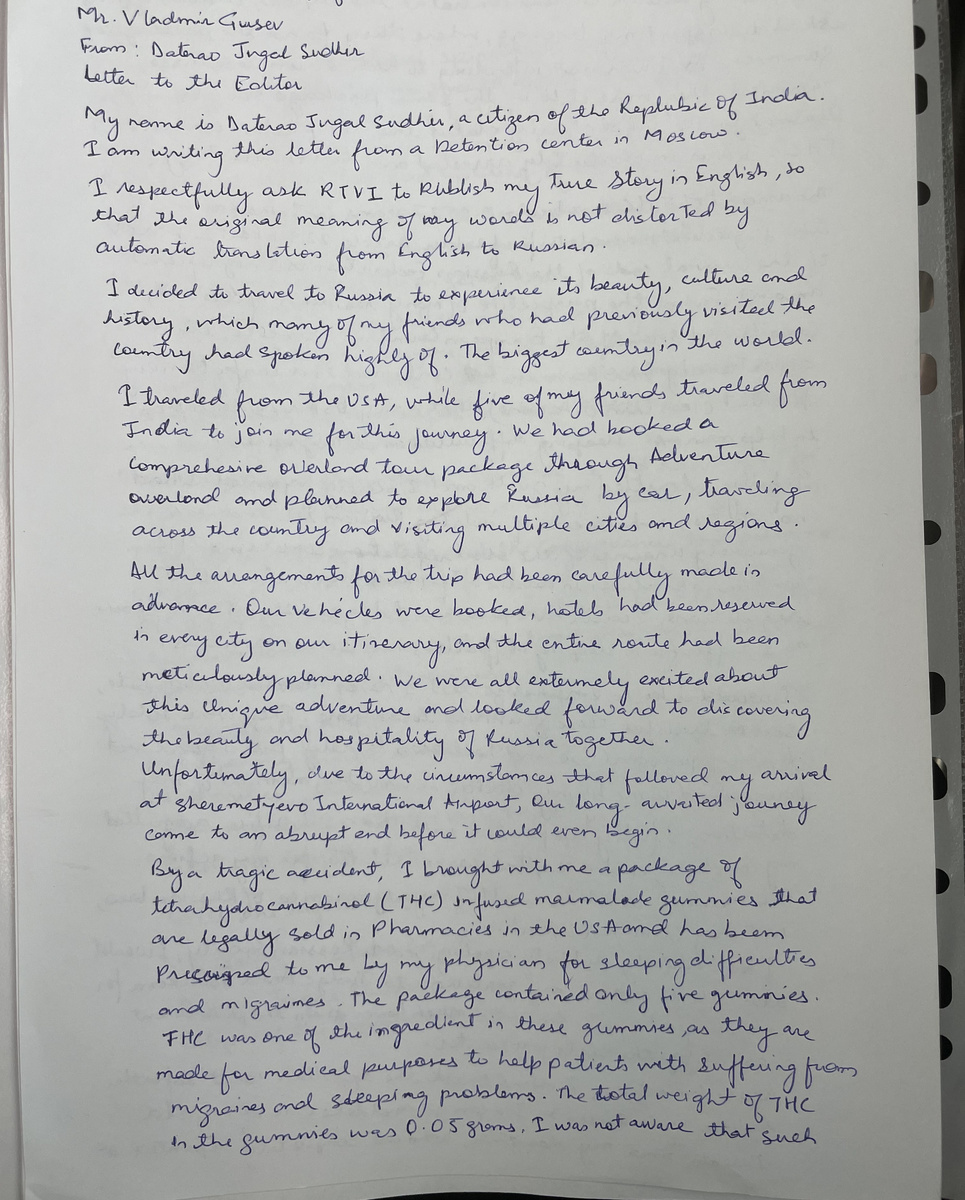 Mr. Vladmir Gusev
From: Daterao Ingal Sudhir
Letter to the Editor
My name is Daterao Ingal Sudhir, a citizen of the Replubic of India.
I am writing this letter from a Detention center in Moscow.
I respectfully ask RTVI to Publish my True Story in English, so
that the original meaning of my words is not distorted by
automatic translation from English to Russian.
I decided to travel to Russia to experience its beauty, culture and
history, which many of my friends who had previously visited the
country had spoken highly of. The biggest country in the world.
I traveled from the USA, while five of my friends traveled from
India to join me for this journey. We had booked a
comprehesive overland tour package through Adventure
overland and planned to explore Russia by car, traveling
across the country and visiting multiple cities and regions.
All the arrangements for the trip had been carefully made in
advance. Our vehecles were booked, hotels had been reserved
in every city on our itinerary, and the entire route had been
meticulously planned. We were all extermely excited about
this Unique adventure and looked forward to discovering
the beauty and hospitality of Russia together.
Unfortunately, due to the circumstances that followed my arrival
at Sheremetyevo International Airport, Our long-awaited journey
came to an abrupt end before it could even begin.
By a tragic accident, I brought with me a package of
tetrahydrocannabinol (THC) infused marmalade gummies that
are legally sold in Pharmacies in the USA and has been
to me by my physician for sleeping difficulties
and migraines. The package contained only five gummies.
THC was one of the ingredient in these gummies, as they are
made for medical purposes to help patients with suffering from
migraines and sleeping problems. The total weight of THC
in the gummies was 0.05 grams. I was not aware that such